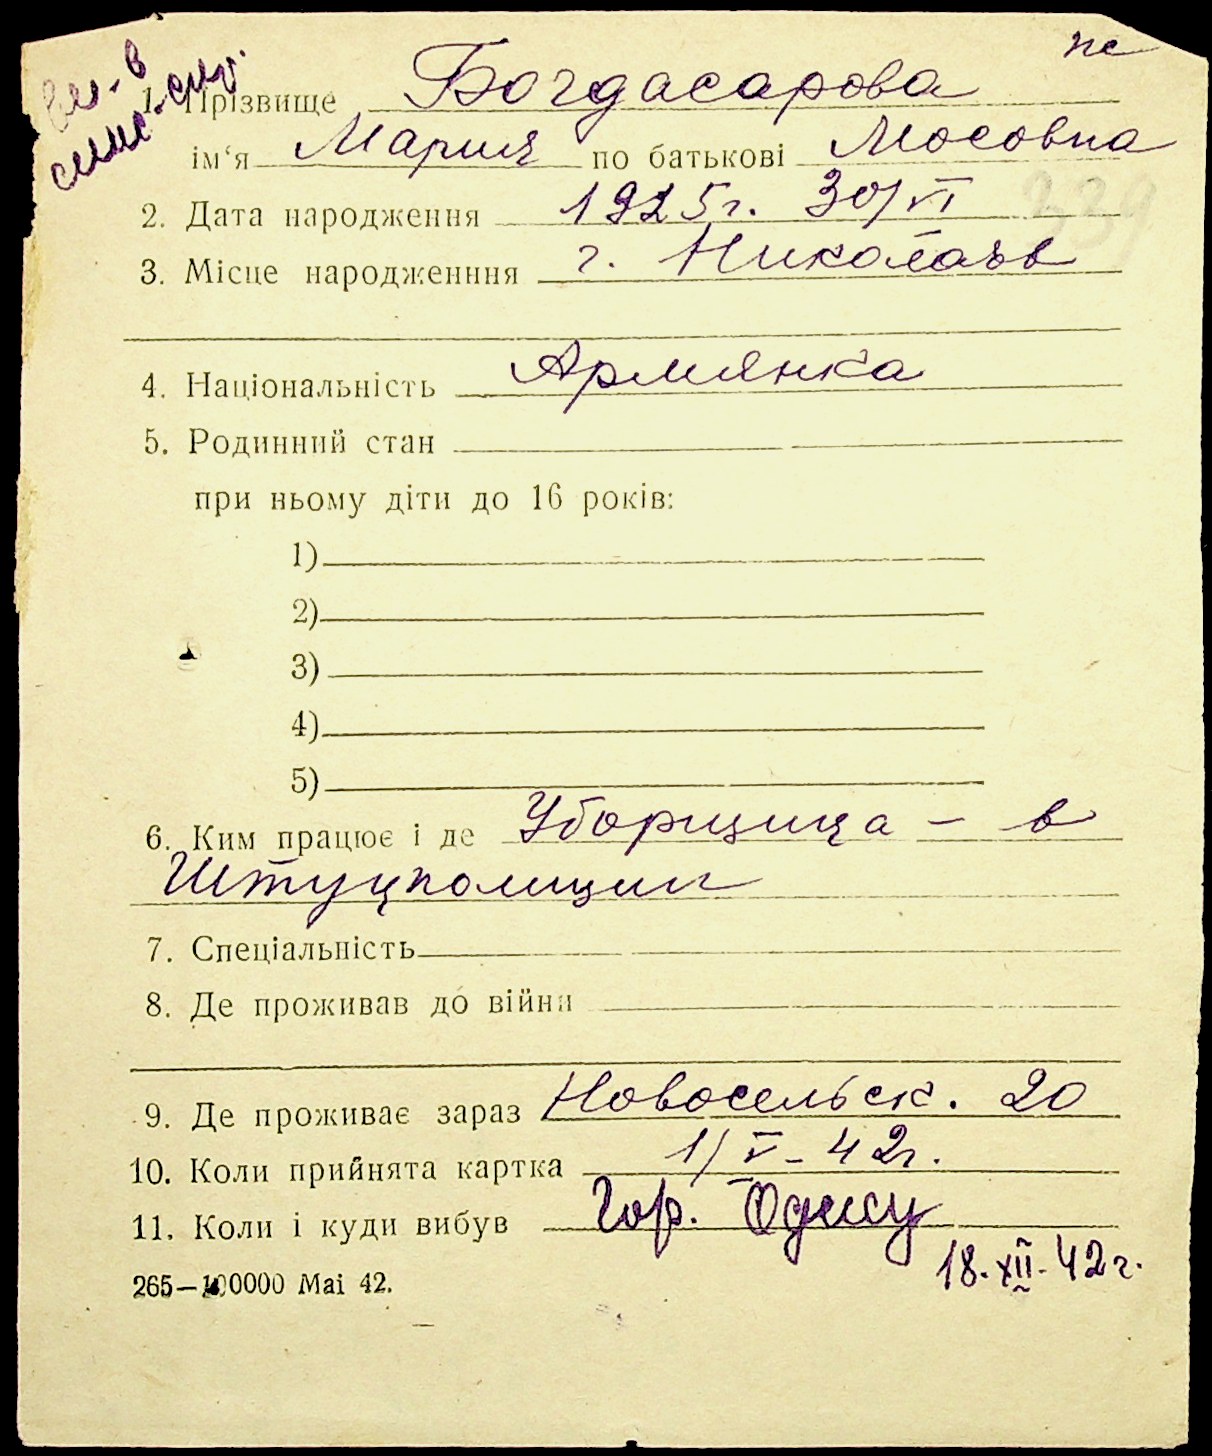 пе
1. Прізвище Богдасарова
ім‘я Мария по батькові Мосовна
2. Дата народження 1925г. 30/VI
339
3. Місце народженння г. Николаев
4. Національність Армянка
5. Родинний стан
при ньому діти до 16 років:
1)
2)
3)
4)
5)
6. Ким працює і де Уборщица – в
Штуцполиции
7. Спеціальність
8. Де проживав до війни
9. Де проживає зараз Новосельск. 20
10. Коли прийнята картка 1/V – 42г.
11. Коли і куди вибув Гор. Одессу
18.XII.42г.
265—100000 Маі 42.